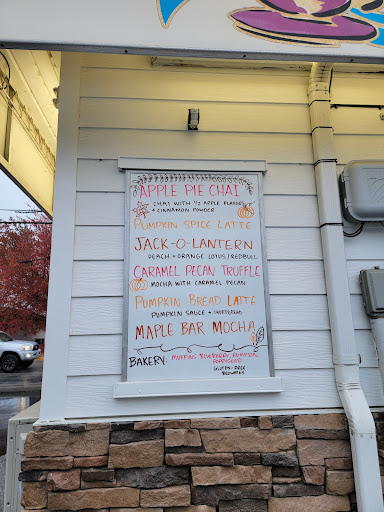 APPLE PIE CHAI
CHAI WITH 1/2 APPLE FLAVOR
+ CINNAMON POWDER
PUMPKIN SPICE LATTE
JACK-O-LANTERN
PEACH + ORANGE LOTUS/REDBULL
CARAMEL PECAN TRUFFLE
MOCHA WITH CARAMEL PECAN
PUMPKIN BREAD LATTE
PUMPKIN SAUCE +
MAPLE BAR MOCHA
BAKERY: MUFFINS: BLUEBERRY, PUMPKIN,
POPPYSEED
GLUTEN-FREE
BROWNIES